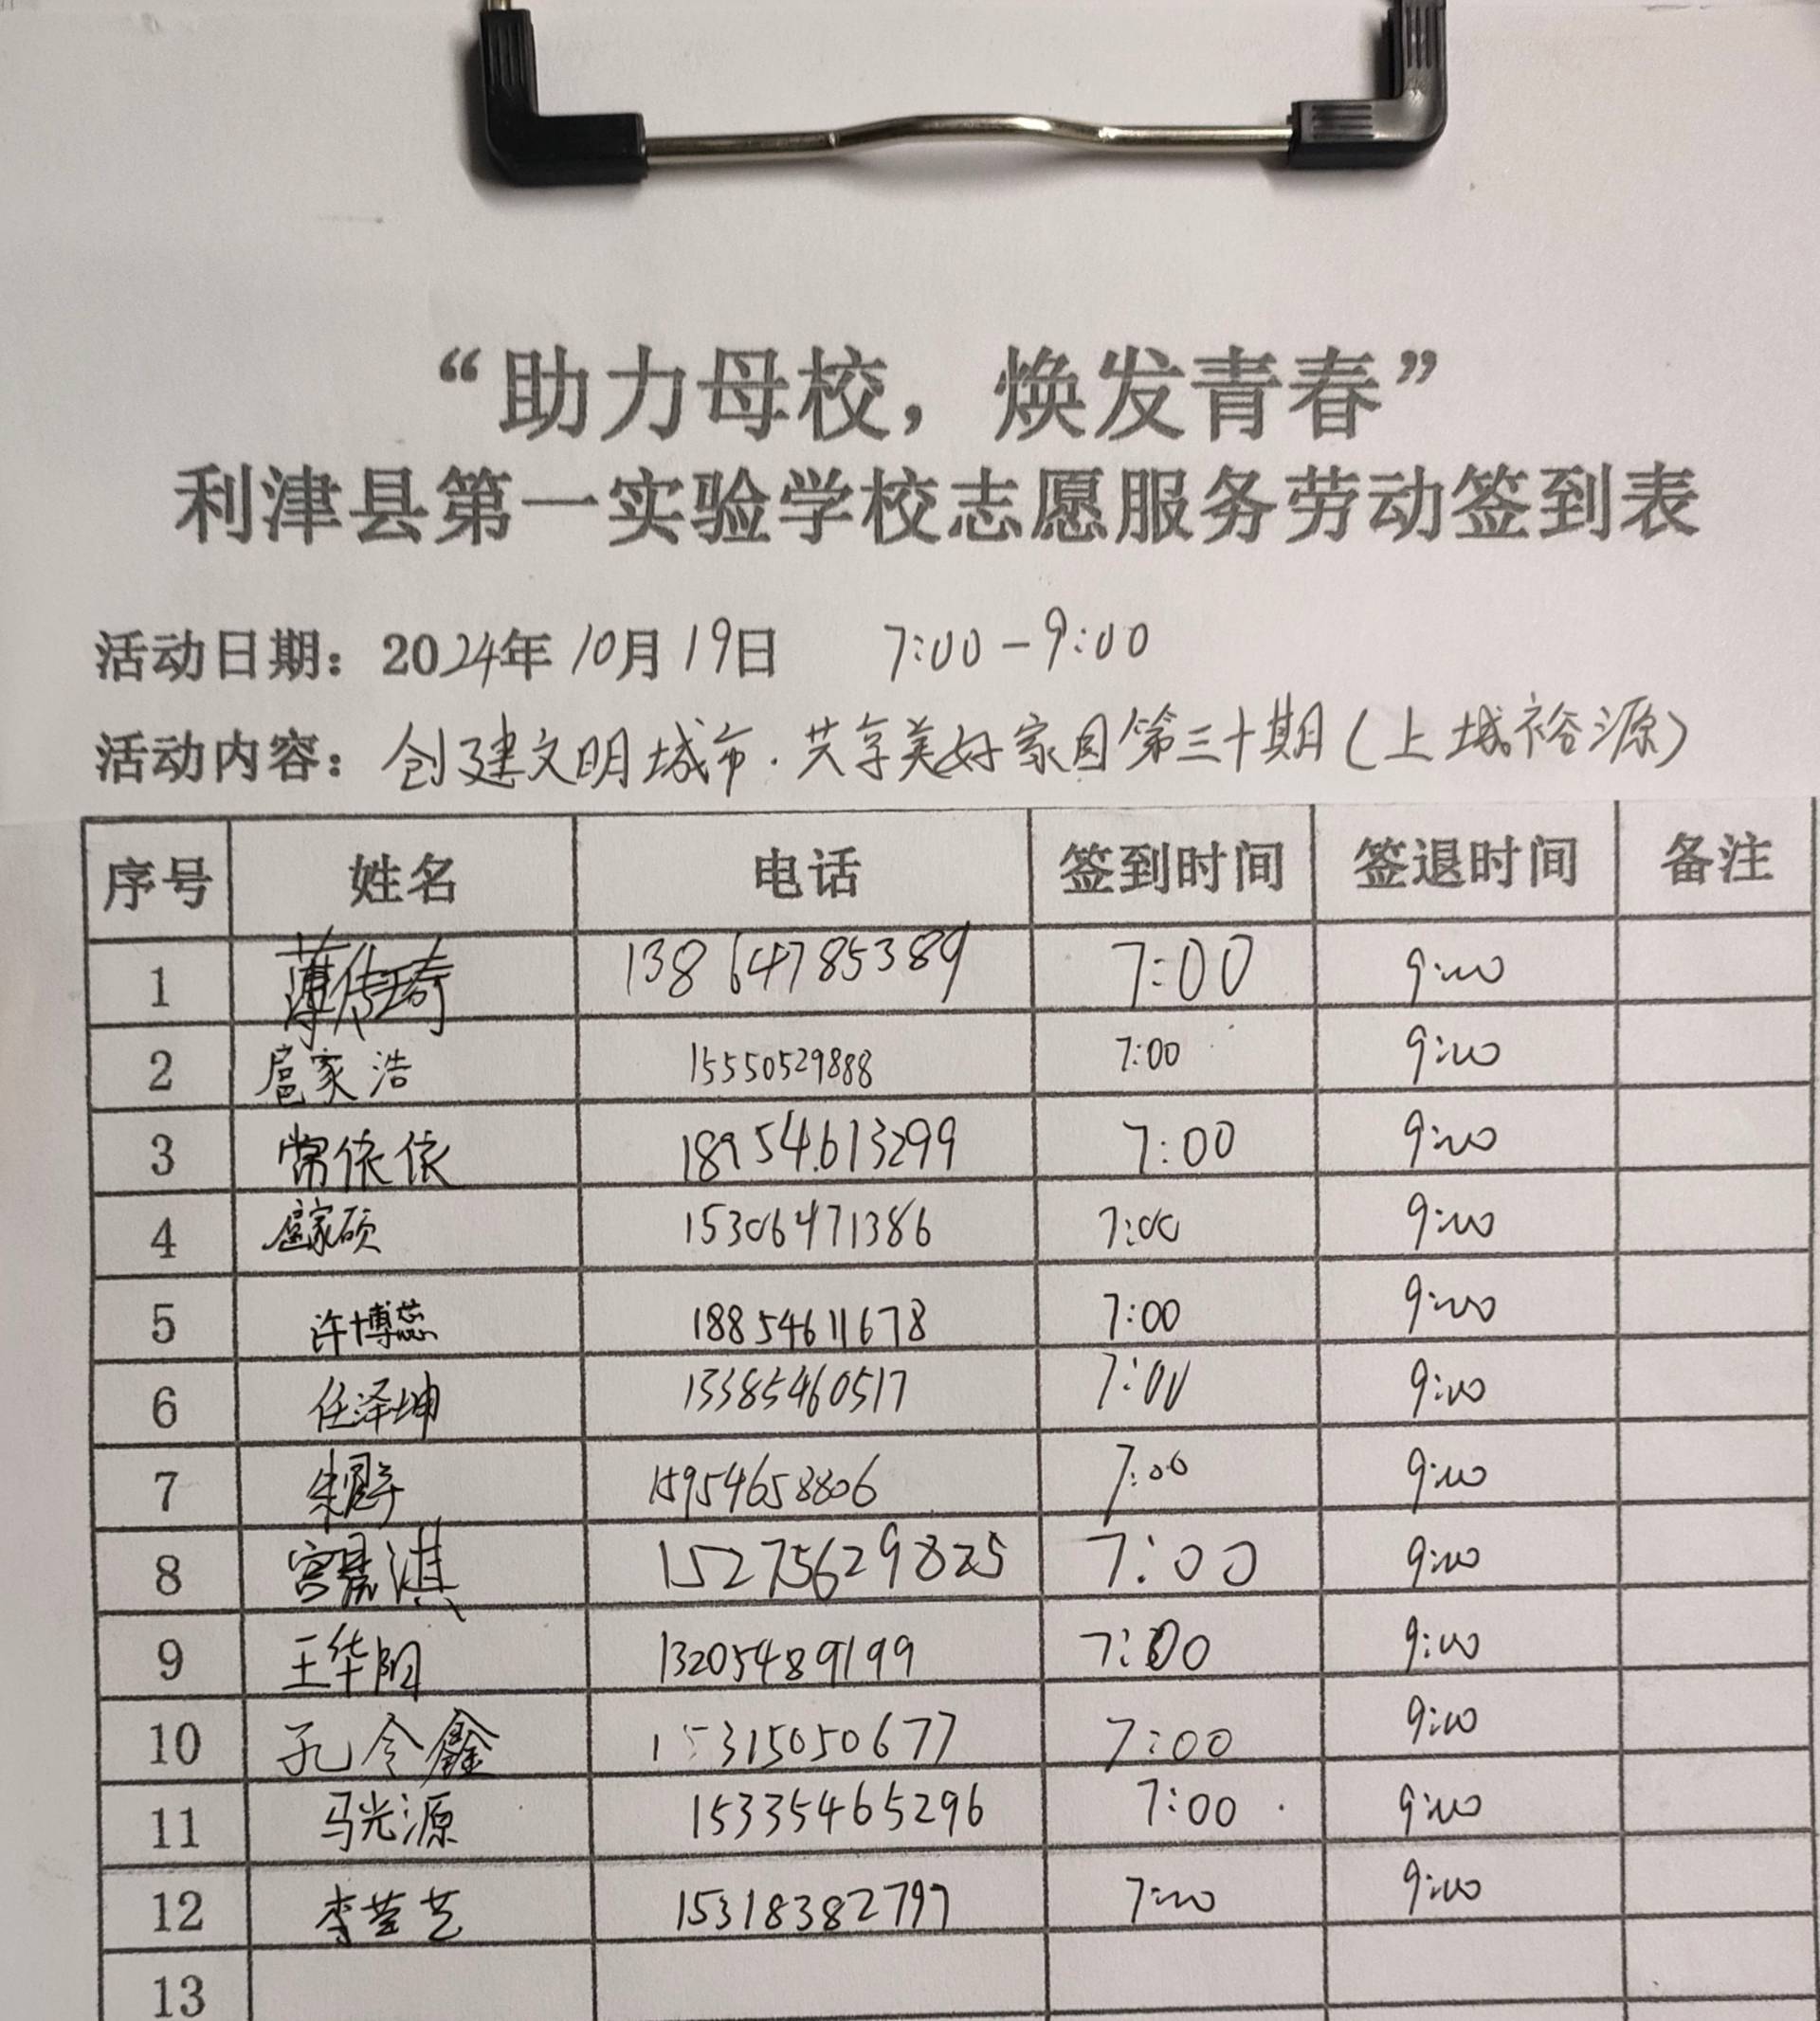 “助力母校，焕发青春”
利津县第一实验学校志愿服务劳动签到表
活动日期：2024年10月19日 7:00-9:00
活动内容：创建文明城市·共享美好家园第三十期（上城裕源）
序号 姓名 电话 签到时间 签退时间 备注
1 薄传琦 13864785389 7:00 9:00
2 扈家浩 15550529888 7:00 9:00
3 常依依 18954613299 7:00 9:00
4 扈家硕 15306471386 7:00 9:00
5 许博蕊 18854611678 7:00 9:00
6 任泽坤 13385460517 7:00 9:00
7 15954658806 7:00 9:00
8 15275629825 7:00 9:00
9 王华阳 13205489199 7:00 9:00
10 孔令鑫 15315050677 7:00 9:00
11 马光源 15335465296 7:00 9:00
12 李莹艺 15318382797 7:00 9:00
13